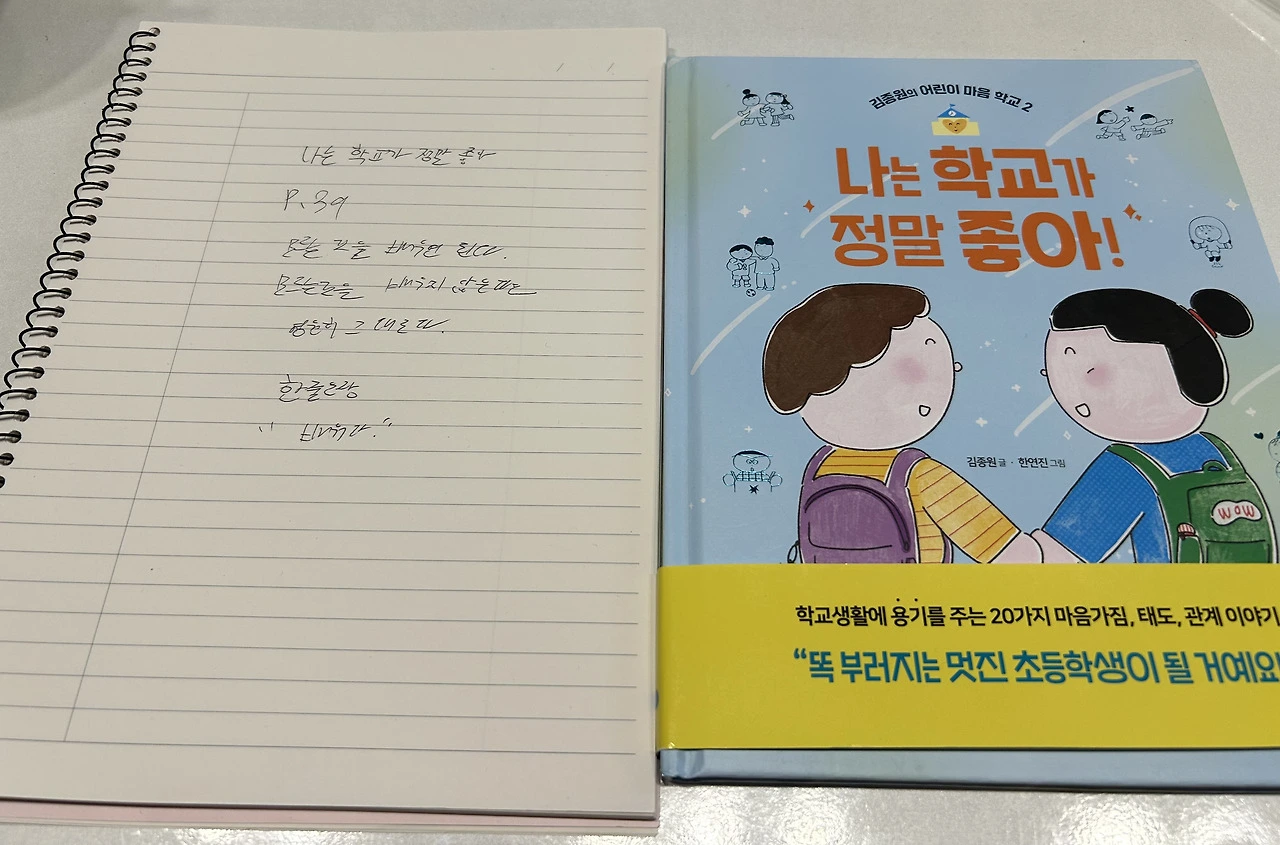 나는 학교가 정말 좋아
P. 39
모르는 것을 배우면 된다.
모르는 것을 배우지 않으면
영원히 그대로다.
한줄요약
"배우다."
김종원의 어린이 마음 학교 2
나는 학교가
정말 좋아!
김종원 글 · 한연진 그림
WOW
학교생활에 용기를 주는 20가지 마음가짐, 태도, 관계 이야기
“똑 부러지는 멋진 초등학생이 될 거예요